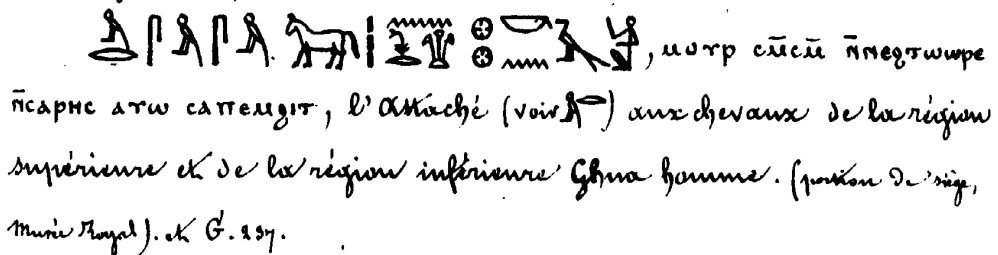 , ⲙⲟⲩⲣ ⲥⲙ̄ⲥⲙ̄ ⲛ̄ⲛⲉϩⲧⲱⲱⲣⲉ
ⲛ̄ⲥⲁⲣⲏⲥ ⲁⲩⲱ ⲥⲁⲡⲉⲙϩⲓⲧ, l'Attaché (voir ) aux chevaux de la région
supérieure et de la région inférieure Ghna homme. (portion de siège,
Musée Royal). et G. 237.